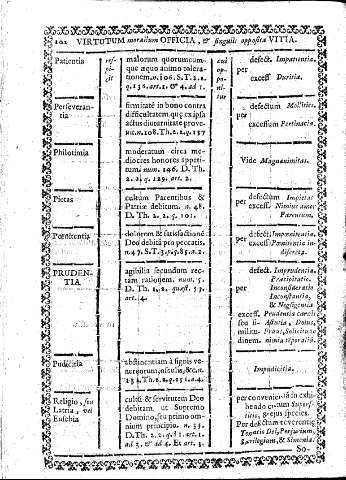 102 VIRTUTUM moralium OFFICIA, & singulis opposita VITIA.
Patientia
respicit
malorum quorumcum-
que æquo animo tolera-
tionem. n. 106. S. T. 2. 2.
q. 136. art. 1. & 4. ad 1.
cui opponitur
per
defect. Impatientia.
excess. Durities.
Perseveran-
tia
firmitatē in bono contra
difficultatem quę ex ipsa
actus diuturnitate prove-
nit. n. 108. Th. 2. 2. q. 137
per
defectum Mollities.
excessum Pertinacia.
Philotimia
moderatum circa me-
diocres honores appeti-
tum; num. 146. D. Th.
2. 2. q. 129. art. 2.
Vide Magnanimitas.
Pietas
cultum Parentibus &
Patriæ debitum. n. 48.
D. Th. 2. 2. q. 101.
per
defectum Impietas
excess. Nimius amor
Parentum.
Pœnitentia
dolorem & satisfactionē
Deo debitā pro peccatis.
n. 47. S. T. 3. p. q. 85. a. 2.
per
defect. Impœnitentia.
excess. Pœnitentia in-
discreta.
PRUDEN-
TIA
agibilia secundum rec-
tam rationem. num. 5.
D. Th. 1. 2. quæst. 55.
art. 4.
per
defect. Imprudentia.
Præcipitatio.
Inconsideratio
Inconstantia,
& Negligentia
excess. Prudentia carnis
seu Astutia, Dolus,
Fraus, Solicitudo
nimia temporalium.
Pudicitia
abstinentiam à signis ve-
nereorum,
Impudicitia.
Religio, seu
Latria, vel
Eusebia
cultū & servitutem Deo
debitam, ut Supremo
Domino, seu primo om-
nium principio. n. 35.
D. Th. 2. 2. q. 81. art. 1.
ad 3. & ad 4. Et art. 3.
per convenientiā in exhi-
bendo cultum Supersti-
tio, & ejus species.
Per defectum reverentiæ
Tentatio Dei, Perjurium,
Sacrilegium, & Simonia.
So-